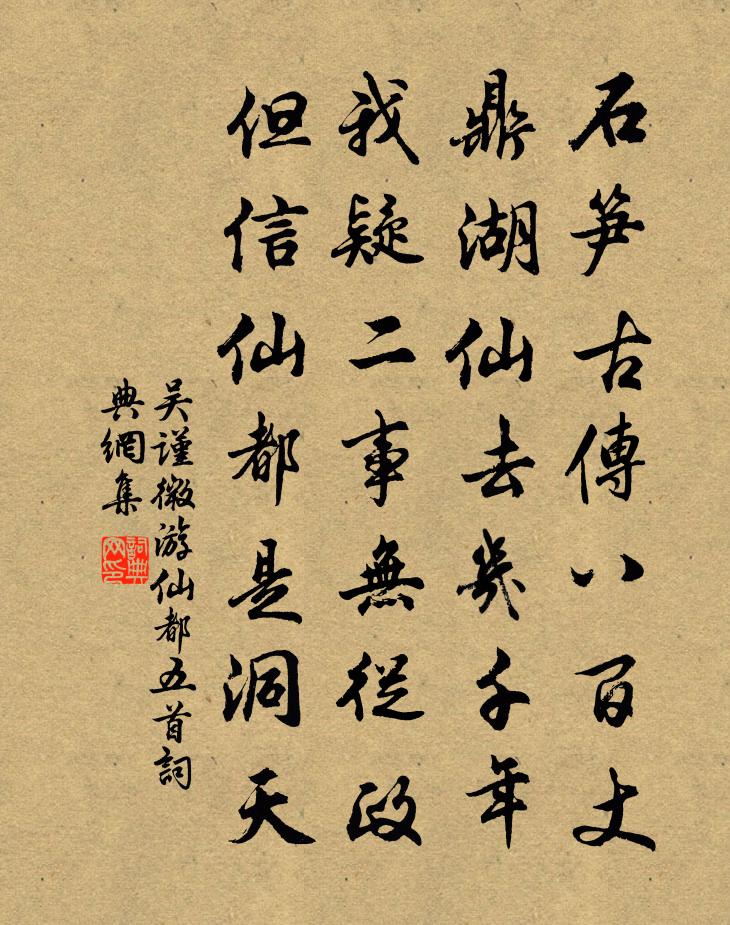 石笋古傳八百丈
鼎湖仙去幾千年
我疑二事無從政
但信仙都是洞天
吴謹微游仙都五首詞
典網集
詞典网印